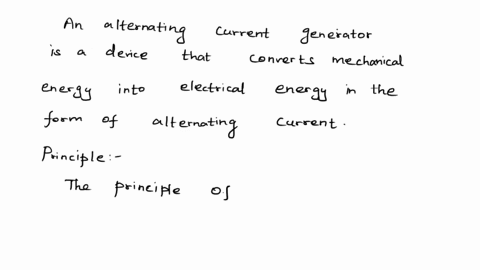 An alternating current generator
is a device that converts mechanical
energy into electrical energy in the
form of alternating current.
Principle:-
The principle of